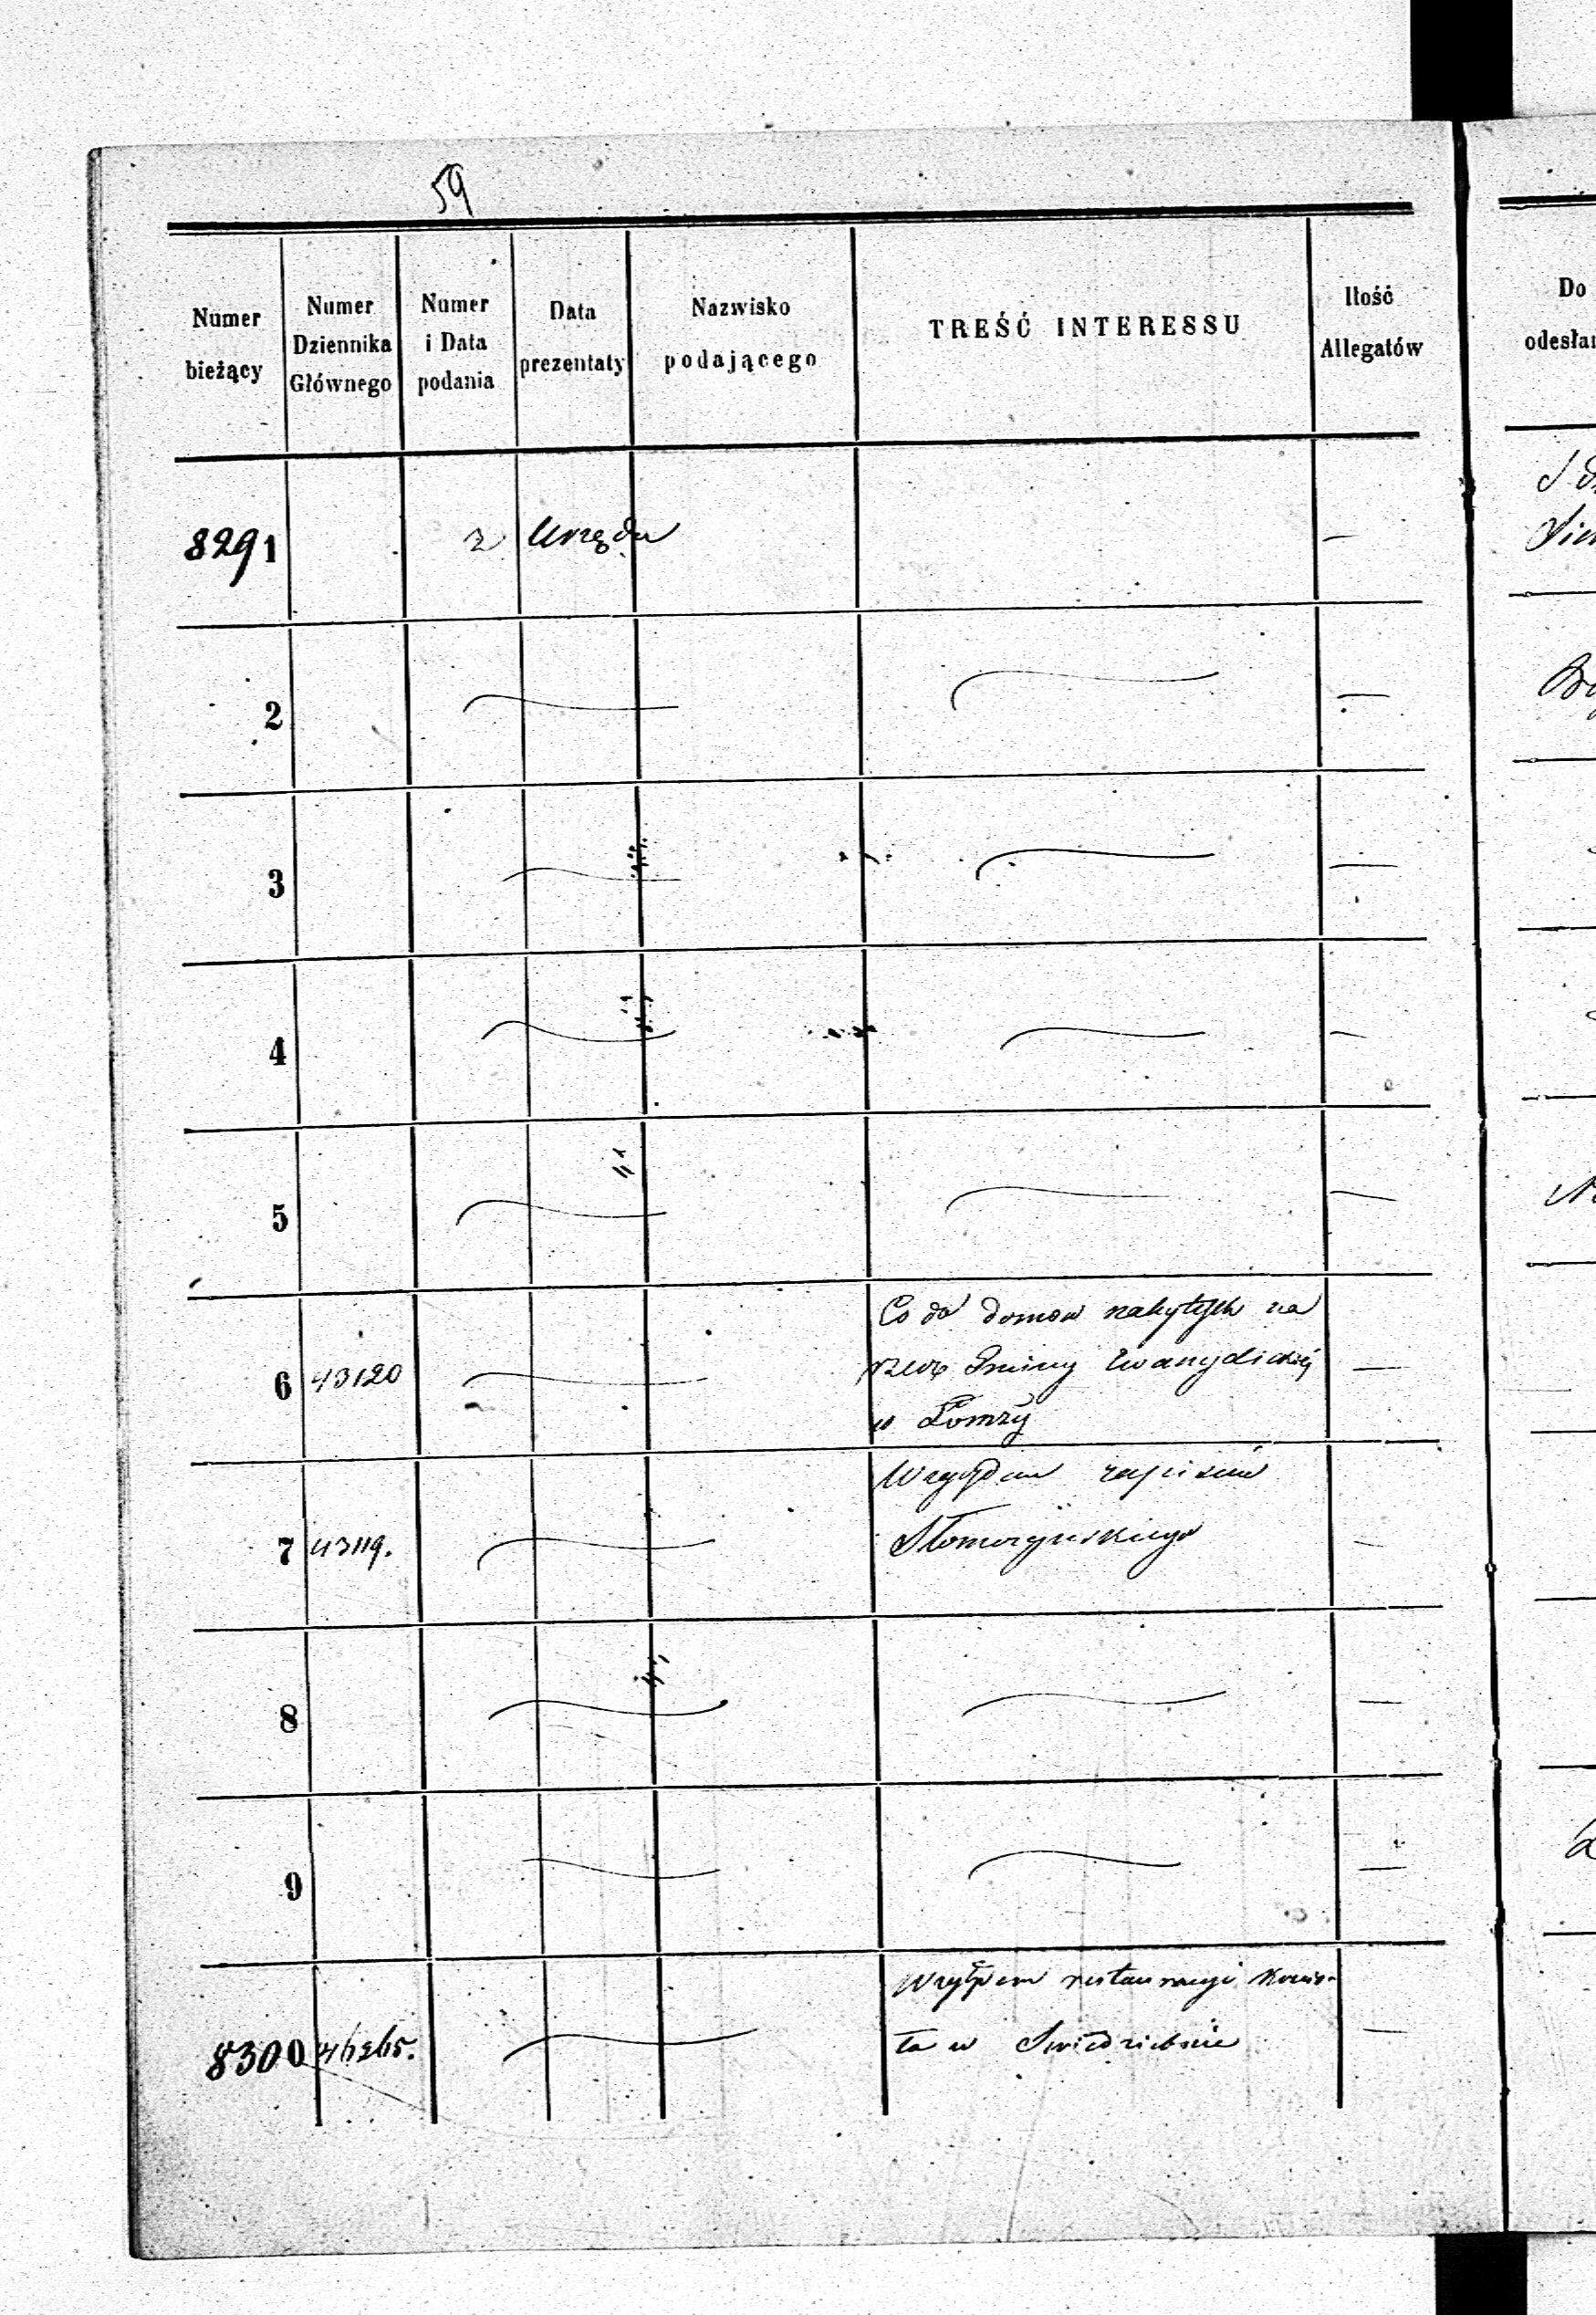 59
Numer bieżący
Numer Dziennika Głównego
Numer i Data podania
Data prezentaty
Nazwisko podającego
TREŚĆ INTERESSU
Ilość Allegatów
Do
odesłan
8291 z Urzędu —
2 —
3 —
4 —
5 —
6 43120 —
Co do domów nabytych na
rzecz Gminy Ewangelickiej
w Łomży
7 43119. —
Względem zapisów
8 —
9 —
8300 46265. —
Względem restauracyi Kościo-
ła w Świedziebnie